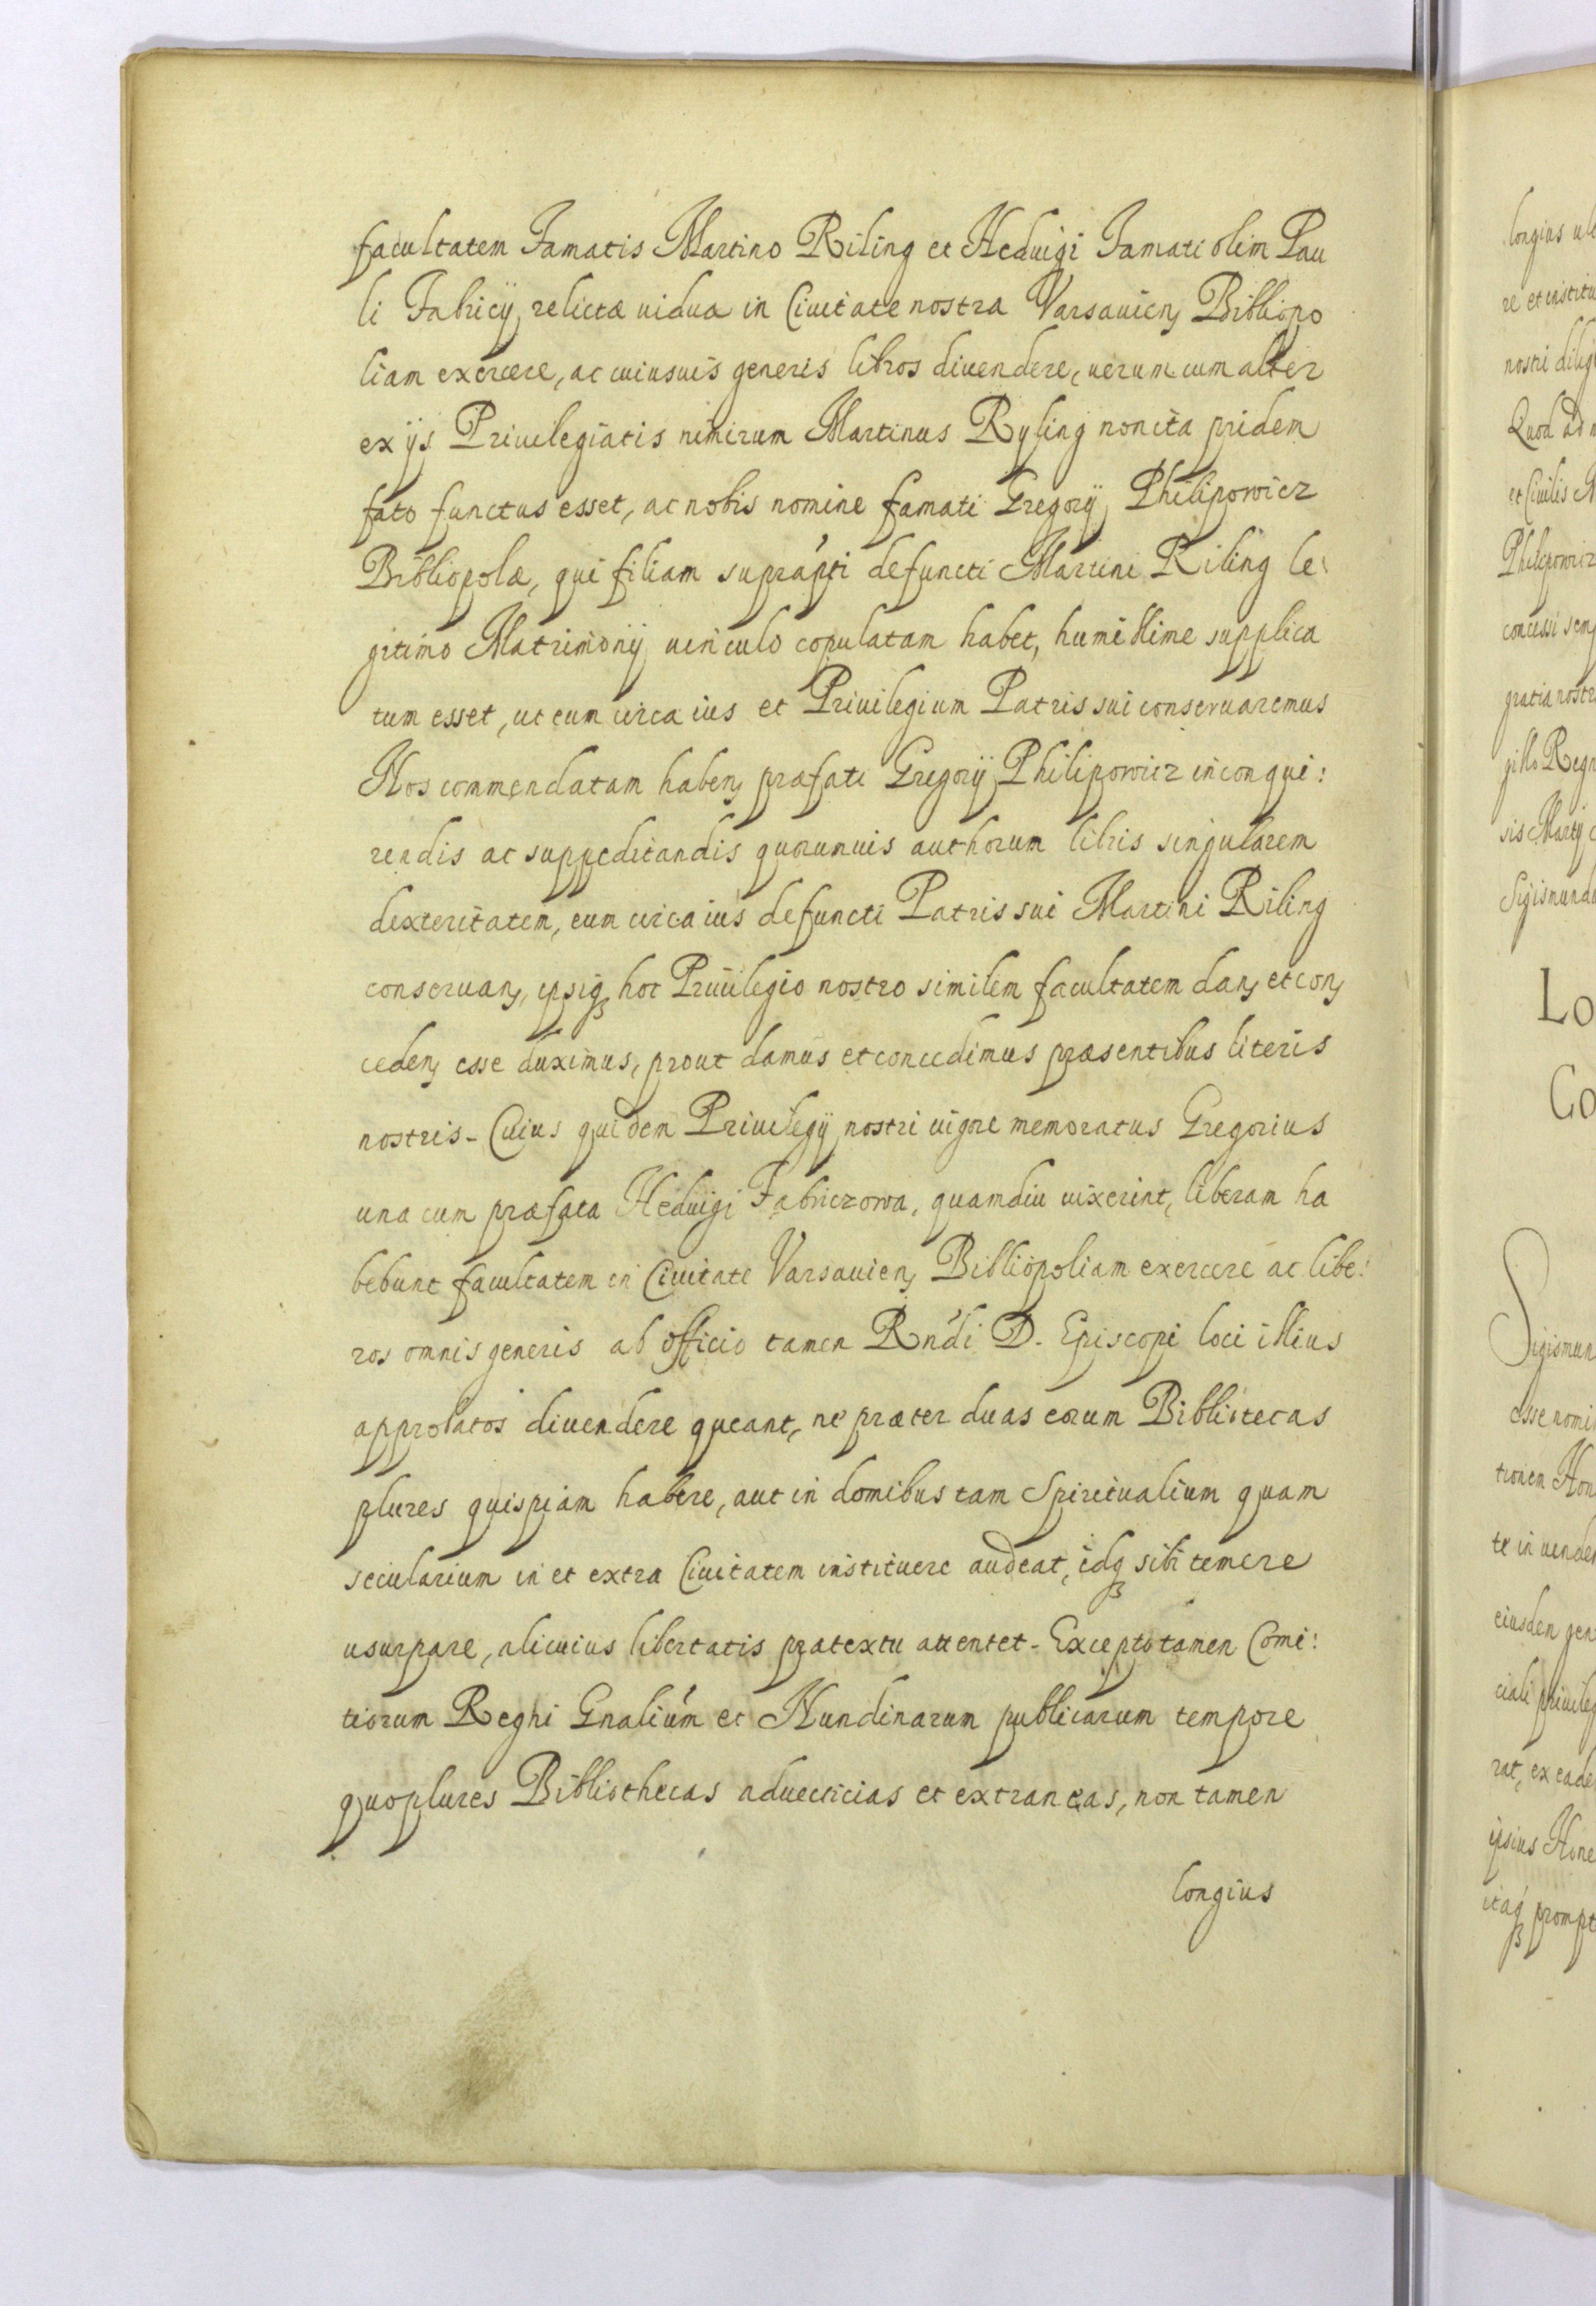 facultatem Famatis Martino Riling et Heduigi Famati olim Pau
li Fabricij relictæ uiduæ in Ciuitate nostra Varsauien, Bibliopo
liam exercere, ac cuiusuis generis libros diuendere, uerum cum alter
ex ijs Priuilegiatis nimirum Martinus Ryling non ita pridem
fato functus esset, ac nobis nomine famati Gregorij Philipowicz
Bibliopolæ, qui filiam supràpti defuncti Martini Riling le:
gitimo Matrimonij uinculo copulatam habet, humillime supplica
tum esset, ut eum circa ius et Priuilegium Patris sui conseruaremus
Nos commendatam haben, præfati Gregorij Philipowicz in conqui:
rendis ac suppeditandis quorumuis authorum libris singularem
dexteritatem, eum circa ius defuncti Patris sui Martini Riling
conseruan, ipsiq hoc Priuilegio nostro similem facultatem dan, et con,
ceden, esse duximus, prout damus et concedimus præsentibus literis
nostris - Cuius quidem Priuilegij nostri uigore memoratus Gregorius
una cum præfata Heduigi Fabriczowa, quamdiu uixerint, liberam ha
bebunt facultatem in Ciuitate Varsauien, Bibliopoliam exercere ac libe:
ros omnis generis ab officio tamen Rńdi D. Episcopi loci illius
approbatos diuendere queant, ne præter duas eorum Bibliotecas
plures quispiam habere, aut in domibus tam Spiritualium quam
secularium in et extra Ciuitatem instituere audeat, idq sibi temere
usurpare, alicuius libertatis prætextu attentet - Excepto tamen Comi:
tiorum Regni Gnaliúm et Nundinarum publicarum tempore
quo plures Bibliothecas aduecticias et extraneas, non tamen
longius
longius
re et institu
nostri dilig
Quod ad
et Ciuilis
Philipowicz
concessi
gratia nostr
gillo Regn
sis Martij
Sigismund
Lo
Co
Sigismun
esse nomi
tionem Hon
te in uenden
eiusdem gen
ciali priuileg
rat, ex eade
ipsius Hone
itaq prompt